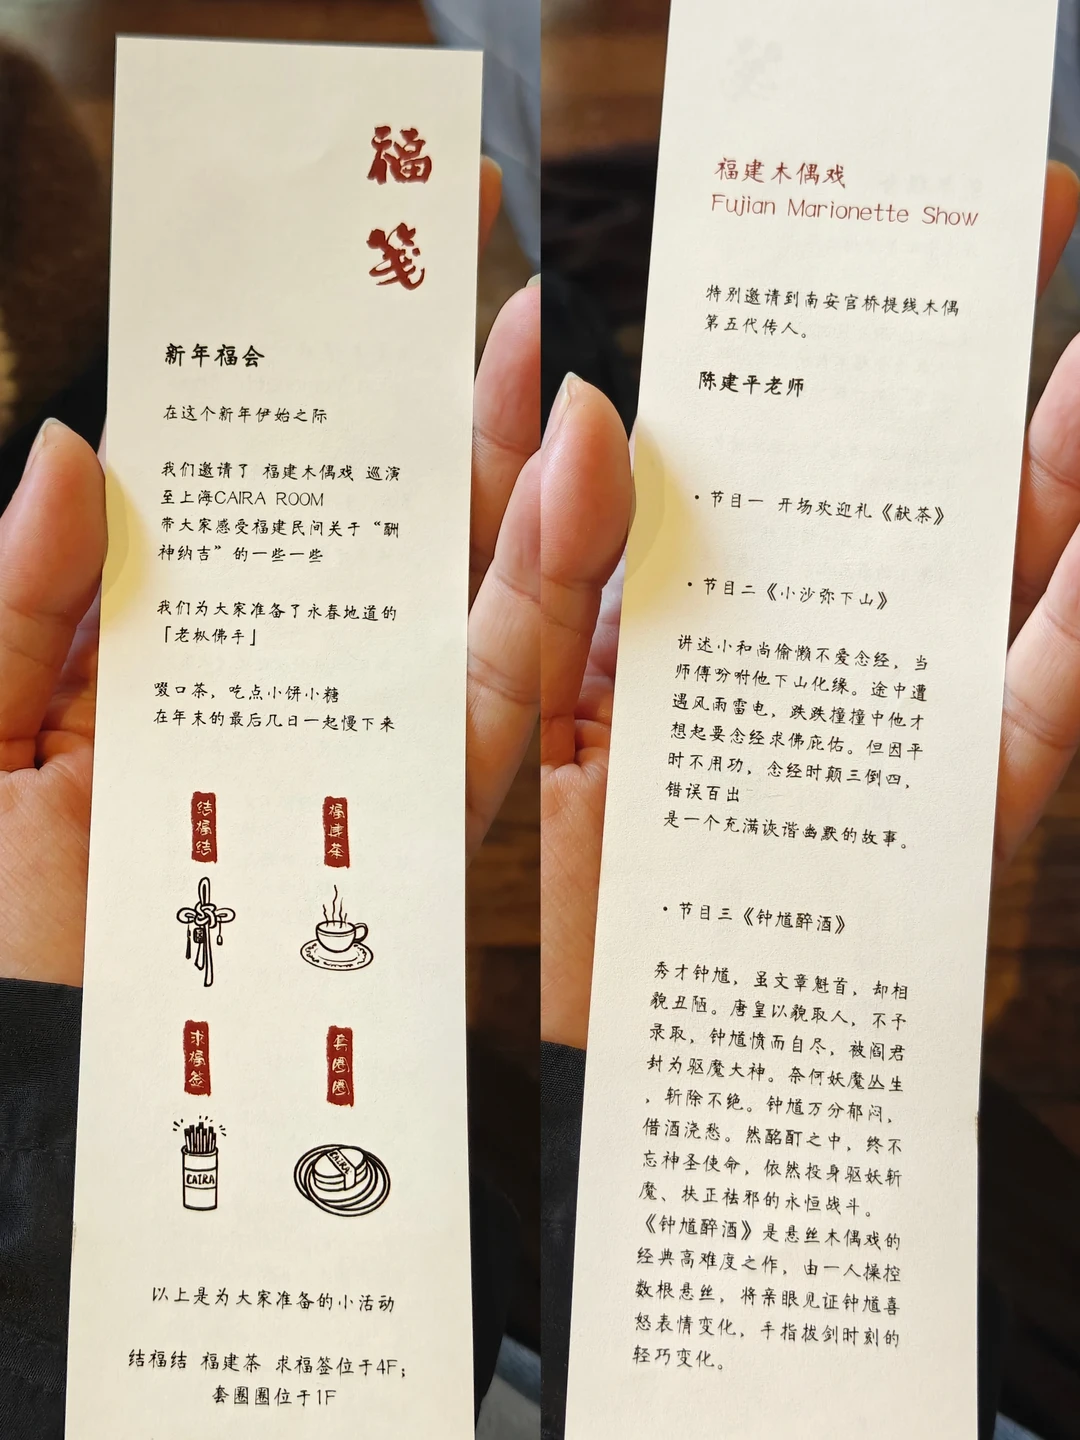 福
笺
新年福会
在这个新年伊始之际
我们邀请了 福建木偶戏 巡演
至上海CAIRA ROOM
带大家感受福建民间关于“酬
神纳吉”的一些一些
我们为大家准备了永春地道的
「老枞佛手」
啜口茶，吃点小饼小糖
在年末的最后几日一起慢下来
结福结
福建茶
求福签
套圈圈
CAIRA
CAIRA
以上是为大家准备的小活动
结福结 福建茶 求福签位于4F；
套圈圈位于1F
福建木偶戏
Fujian Marionette Show
特别邀请到南安官桥提线木偶
第五代传人。
陈建平老师
·节目一 开场欢迎礼《献茶》
·节目二《小沙弥下山》
讲述小和尚偷懒不爱念经，当
师傅吩咐他下山化缘。途中遭
遇风雨雷电，跌跌撞撞中他才
想起要念经求佛庇佑。但因平
时不用功，念经时颠三倒四，
错误百出
是一个充满诙谐幽默的故事。
·节目三《钟馗醉酒》
秀才钟馗，虽文章魁首，却相
貌丑陋。唐皇以貌取人，不予
录取，钟馗愤而自尽，被阎君
封为驱魔大神。奈何妖魔丛生
，斩除不绝。钟馗万分郁闷，
借酒浇愁。然酩酊之中，终不
忘神圣使命，依然投身驱妖斩
魔、扶正祛邪的永恒战斗。
《钟馗醉酒》是悬丝木偶戏的
经典高难度之作，由一人操控
数根悬丝，将亲眼见证钟馗喜
怒表情变化，手指拔剑时刻的
轻巧变化。